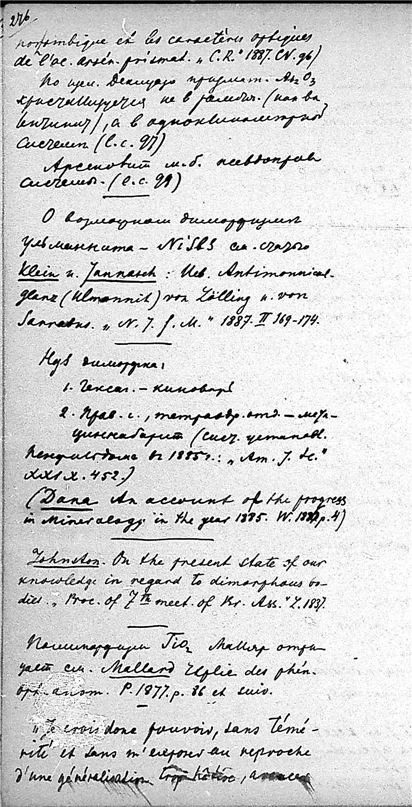 276
rhombique et les caractères optiques
de l'ac. arsén. prismat. „C.R." 1887. CV. 96)
По изсл. Деклуазо призмат. As₂O₃
кристаллизуется не в ромбич.
а в одноклиномерной
системе (l.c. 97)
Арсеновит м.б. псевдоправ
системы. (l.c. 99)
О возможном диморфизме
ульманнита – NiSbS см. статью
Klein u. Jannasch: Ueb. Antimonnickel-
glanz (Ulmannit) von Lölling u. von
Sarrabus. „N. J. f. M." 1887. II 169-174.
HgS диморфна:
1. Гексаг. – киноварь
2. Прав. с., тетраэдр. отд. – мета-
циннабарит (сист. установл.
Пенфильдом в 1885 г.: „Am. J. Sc."
XXIX. 452.)
(Dana An account of the progress
in Mineralogy in the year 1885. W. p. 4)
Johnston. On the present state of our
knowledge in regard to dimorphous bo-
dies. „Proc. of 7th meet. of Br. Ass." L. 1837.
Полиморфизм TiO₂ Маллар отри-
цает см. Mallard Explic. des phén.
opt. anom. P. 1877. p. 86 et suiv.
„Je crois donc pouvoir, sans témé-
rité et sans m'exposer au reproche
d'une généralisation trop hâtive,